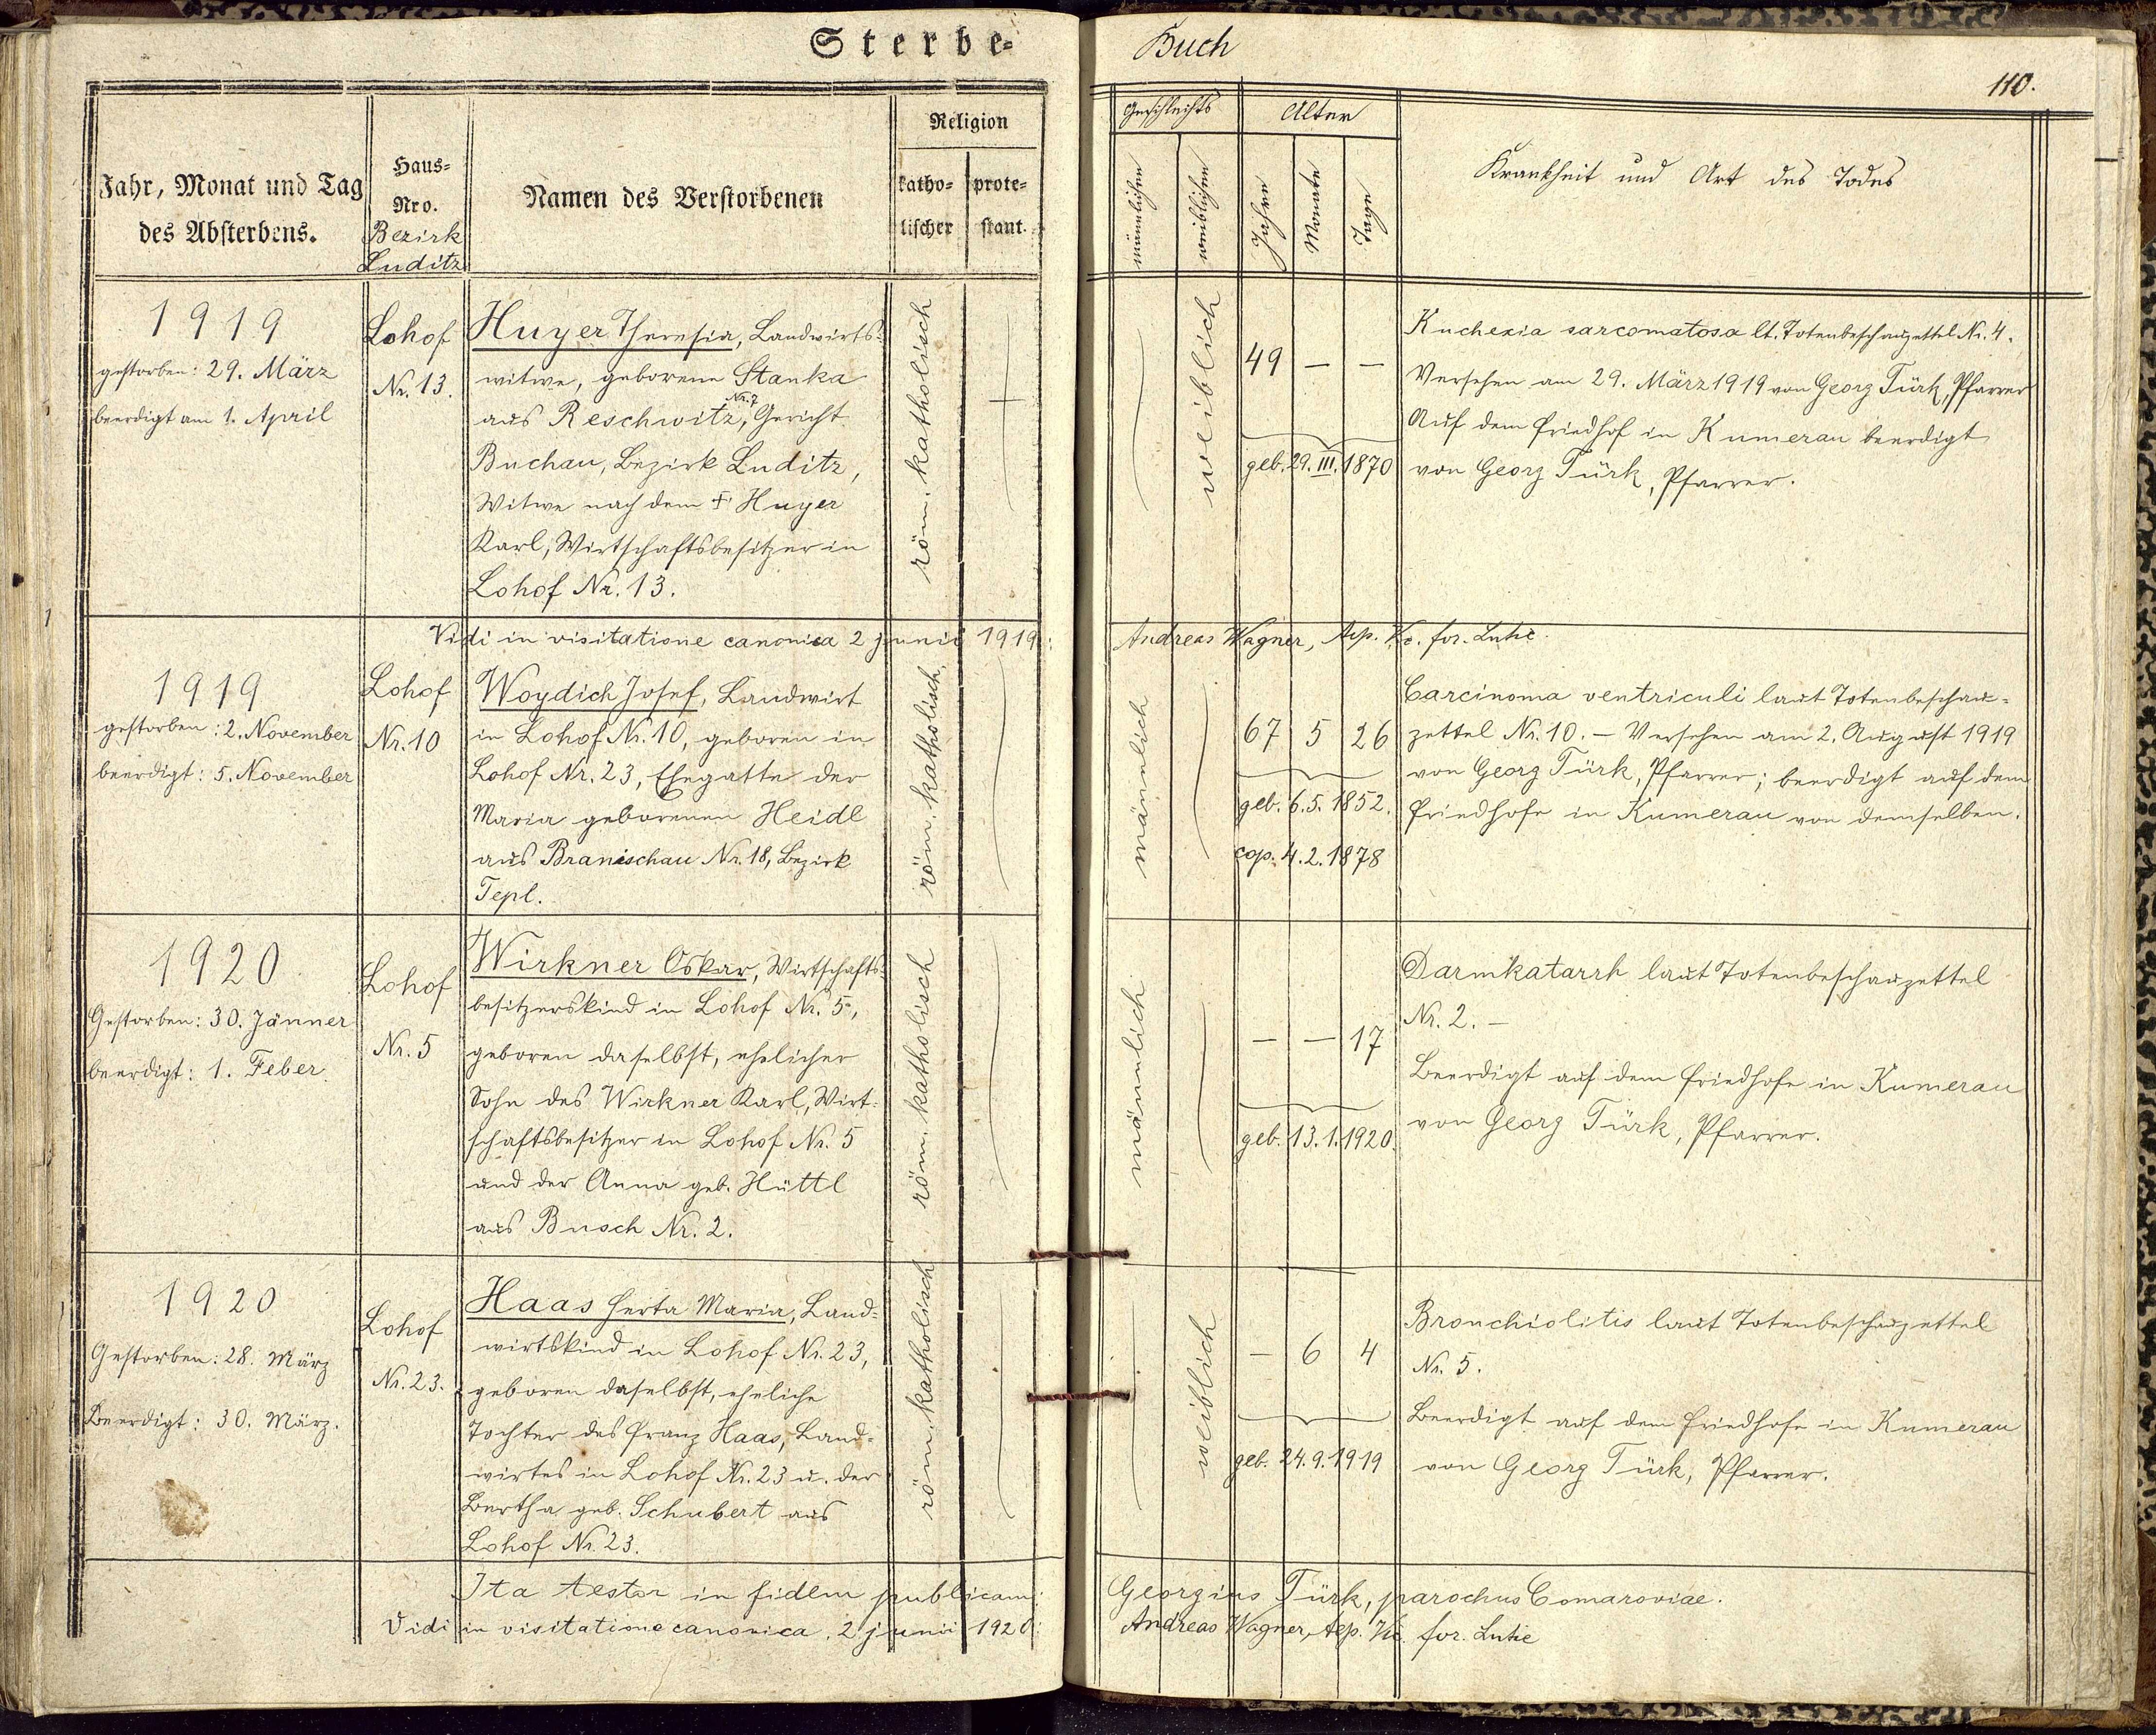 Sterbe-
Buch
110.
Jahr, Monat und Tag
des Absterbens.
Haus-
Nro.
Bezirk
Luditz
Namen des Verstorbenen
Religion
katho-
lischer
prote-
stant.
Geschlechts
männlichen
weiblichen
Alter
Jahre
Monate
Tage
Krankheit und Art des Todes
1919
gestorben: 29. März
beerdigt am 1. April
Lohof
Nr. 13.
Huyer Theresia, Landwirts-
witwe, geborene Stanka
aus Reschwitz Nr. 7, Gericht
Buchau, Bezirk Luditz,
Witwe nach dem † Huyer
Karl, Wirtschaftsbesitzer in
Lohof Nr. 13.
röm. katholisch
weiblich
49 — —
geb. 29. III. 1870
Kachexia sarcomatosa lt. Totenbeschauzettel Nr. 4.
Versehen am 29. März 1919 von Georg Türk, Pfarrer
Auf dem Friedhof in Kumerau beerdigt
von Georg Türk, Pfarrer.
Vidi in visitatione canonica 2 junii 1919:
Andreas Wagner, for.
1919
gestorben: 2. November
beerdigt: 5. November
Lohof
Nr. 10
Woydich Josef, Landwirt
in Lohof Nr. 10, geboren in
Lohof Nr. 23, Ehegatte der
Maria geborenen Heidl
aus Branischau Nr. 18, Bezirk
Tepl.
röm. katholisch.
männlich
67 5 26
geb. 6.5. 1852.
cop. 4.2. 1878
Carcinoma ventriculi laut Totenbeschau-
zettel Nr. 10. — Versehen am 2. August 1919
von Georg Türk, Pfarrer; beerdigt auf dem
Friedhofe in Kumerau von demselben.
1920
Gestorben: 30. Jänner
beerdigt: 1. Feber
Lohof
Nr. 5
Wirkner Oskar, Wirtschafts-
besitzerskind in Lohof Nr. 5,
geboren daselbst, ehelicher
Sohn des Wirkner Karl, Wirt-
schaftsbesitzer in Lohof Nr. 5
und der Anna geb. Hüttl
aus Busch Nr. 2.
röm. katholisch
männlich
— — 17
geb. 13.1.1920.
Darmkatarrh laut Totenbeschauzettel
Nr. 2. —
Beerdigt auf dem Friedhofe in Kumerau
von Georg Türk, Pfarrer.
1920
Gestorben: 28. März
Beerdigt: 30. März.
Lohof
Nr. 23.
Haas Herta Maria, Land-
wirtskind in Lohof Nr. 23,
geboren daselbst, eheliche
Tochter des Franz Haas, Land-
wirtes in Lohof Nr. 23 u. der
Bertha geb. Schubert aus
Lohof Nr. 23.
röm. katholisch
weiblich
— 6 4
geb. 24.9.1919
Bronchiolitis laut Totenbeschauzettel
Nr. 5.
Beerdigt auf dem Friedhofe in Kumerau
von Georg Türk, Pfarrer.
Ita testor in fidem publicam:
Georgius Türk, parochus Comaroviae.
Vidi in visitatione canonica 2 junii 1920:
Andreas Wagner, for.